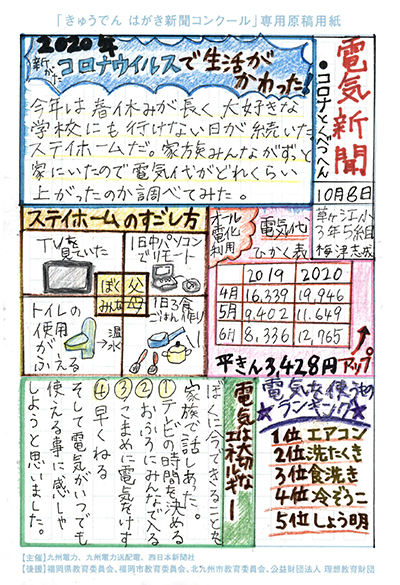 「きゅうでん はがき新聞コンクール」専用原稿用紙
電気新聞
●コロナとくべつへん
10月8日
草ヶ江小
3年5組
梅津志成
2020年
新がたコロナウイルスで生活が
かわった!
今年は春休みが長く大好きな
学校にも行けない日が続いた。
ステイホームだ。家族みんながずっと
家にいたので電気代がどれくらい
上がったのか調べてみた。
ステイホームのすごし方
TVを見ていた
1日中パソコンでリモート
ぼく
父
みんな
母
トイレの使用がふえる
温水
1日3食ごはん作り
オール電化利用
電気代、ひかく表
2019 2020
4月 16,339 19,946
5月 9,402 11,649
6月 8,336 12,765
平きん3,428円アップ
電気を使うものランキング
1位 エアコン
2位 洗たくき
3位 食洗き
4位 冷ぞうこ
5位 しょう明
電気は大切なエネルギー
ぼくに今できることを
家族で話しあった。
①テレビの時間を決める
②おふろにみんなで入る
③こまめに電気をけす
④早くねる
そして電気がいつでも
使える事に感しゃ
しようと思いました。
【主催】九州電力、九州電力送配電、西日本新聞社
【後援】福岡県教育委員会、福岡市教育委員会、北九州市教育委員会、公益財団法人 理想教育財団